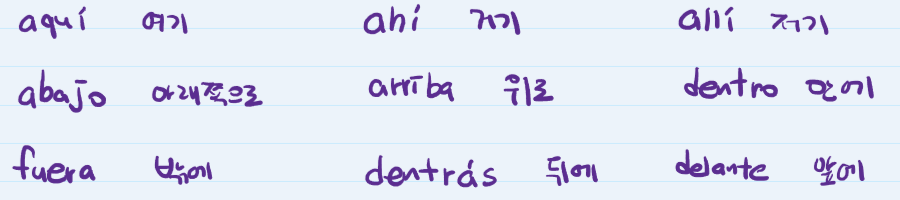 aquí 여기 ahí 거기 allí 저기
abajo 아래쪽으로 arriba 위로 dentro 안에
fuera 밖에 dentrás 뒤에 delante 앞에